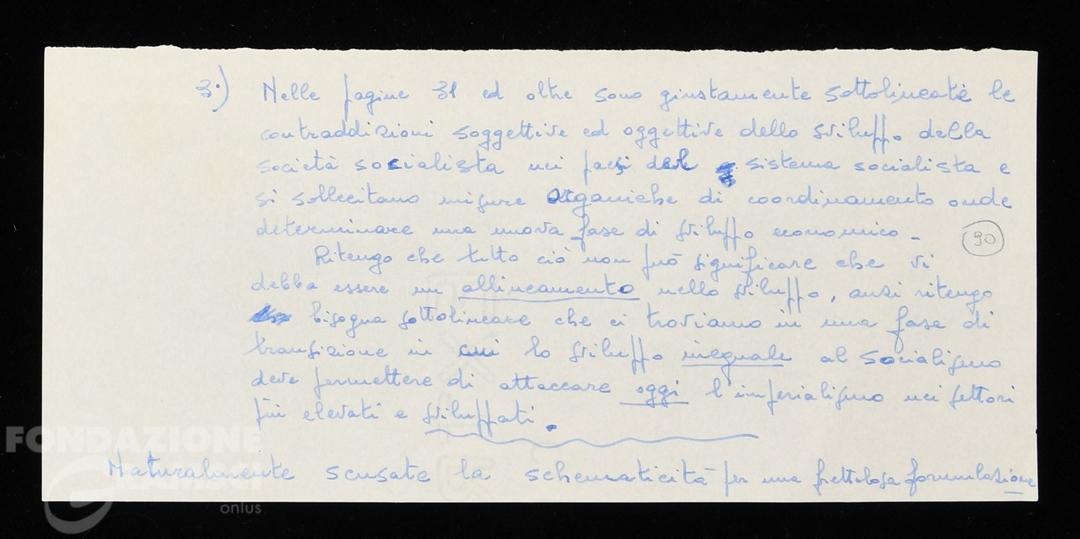 3.) Nelle pagine 31 ed oltre sono giustamente sottolineate le
contraddizioni soggettive ed oggettive dello sviluppo della
società socialista nei paesi del sistema socialista e
si sollecitano misure organiche di coordinamento onde
determinare una nuova fase di sviluppo economico -
90
Ritengo che tutto ciò non può significare che vi
debba essere un allineamento nello sviluppo, anzi ritengo
bisogna sottolineare che ci troviamo in una fase di
transizione in cui lo sviluppo ineguale al socialismo
deve permettere di attaccare oggi l'imperialismo nei settori
più elevati e sviluppati.
Naturalmente scusate la schematicità per una frettolosa formulazione
FONDAZIONE
onlus